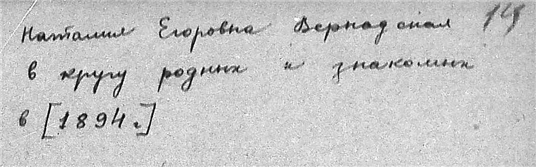 Наталия Егоровна Вернадская 14
в кругу родных и знакомых
в [1894 г.]